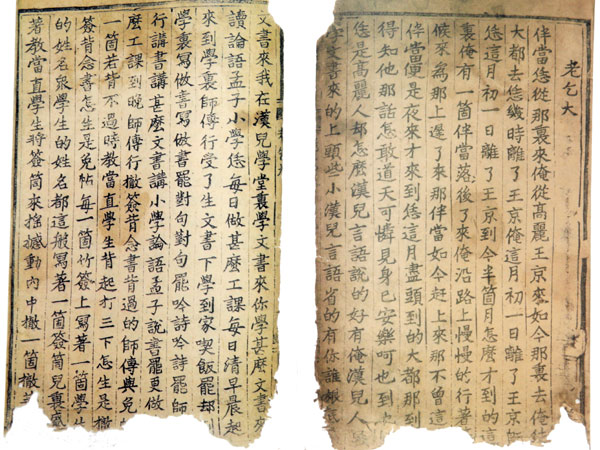 老乞大
伴當恁從那裏來俺從高麗王京來如今那裏去俺往
大都去恁幾時離了王京俺這月初一日離了王京既
恁這月初一日離了王京到今半箇月怎麼才到的這
裏俺有一箇伴當落後了來俺沿路上慢慢的行著
候來為那上遲了來那伴當如今赶上來那不曾這
伴當便是夜來才來到恁這月盡頭到的大都那到
得知他那話怎敢道天可憐見身已安樂呵也到
恁是高麗人却怎麼漢兒言語說的好有俺漢兒人
學文書來的上頭些小漢兒言語省的有你誰根底
文書來我在漢兒學堂裏學文書來你學甚麼文書來
讀論語孟子小學恁每日做甚麼工課每日清早晨起
來到學裏師傅行受了生文書下學到家喫飯罷却
學裏寫做書寫做書罷對句對句罷吟詩吟詩罷師
行講書講甚麼文書講小學論語孟子說書罷更做
麼工課到晚師傅行撤簽背念書背過的師傅與免
一箇若背不過時教當直學生背起打三下怎生是撤
簽背念書怎生是免帖每一箇竹簽上寫著一箇學生
的姓名衆學生的姓名都這般寫著一箇簽筒兒裏盛
著教當直學生將簽筒來搖撼動內中撤一箇撤